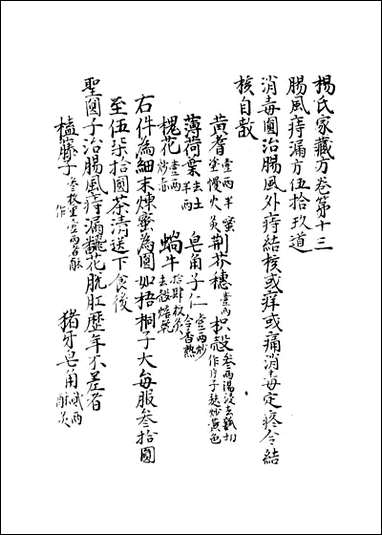 楊氏家藏方卷第十三
腸風痔漏方伍拾玖道
消毒圓治腸風外痔結核或痒或痛消毒定疼令結
核自散
黃耆壹兩半蜜塗慢火炙 荆芥穗壹兩 枳殼叁兩湯浸去瓤切作片子麩炒黃色
薄荷葉去土半兩 皂角子仁壹兩炒令香熟
槐花壹兩炒 蝸牛去殼焙乾
右件為細末煉蜜為圓如梧桐子大每服叁拾圓
至伍柒拾圓茶清送下食後
聖圓子治腸風痔漏飜花脫肛歷年不差者
榼藤子 豬牙皂角貳兩酥炙